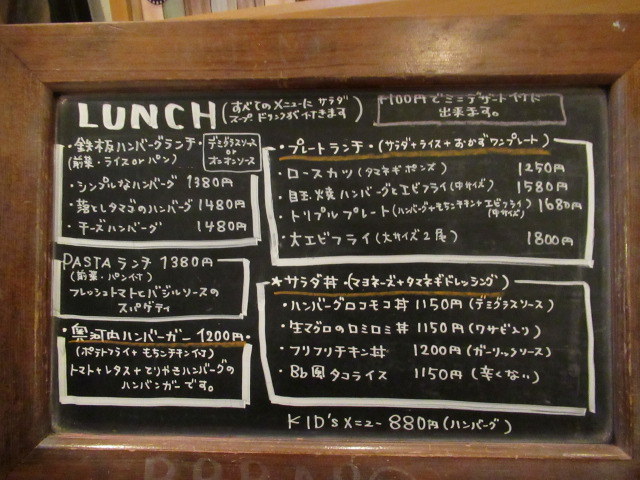 LUNCH (すべてのメニューに サラダ
スープ ドリンクが付きます)
+100円でミニデザート付に
出来ます。
・鉄板ハンバーグランチ・
(前菜・ライスorパン)
デミグラスソース
or
オニオンソース
・シンプルなハンバーグ 1380円
・落としタマゴのハンバーグ 1480円
・チーズハンバーグ 1480円
PASTA ランチ 1380円
(前菜・パン付)
フレッシュトマトとバジルソースの
スパゲティ
・奥河内ハンバーガー 1200円・
(ポテトフライ+もちチキン付)
トマト+レタス+てりやきハンバーグの
ハンバーガーです。
・プレートランチ・(サラダ+ライス+おかずワンプレート)
・ロースカツ(タマネギポンズ) 1250円
・目玉焼ハンバーグとエビフライ(中サイズ) 1580円
・トリプルプレート(ハンバーグ+もちチキン+エビフライ) 1680円
(中サイズ)
・大エビフライ(大サイズ2尾) 1800円
★サラダ丼・(マヨネーズ+タマネギドレッシング)
・ハンバーグロコモコ丼 1150円(デミグラスソース)
・生マグロのロミロミ丼 1150円(ワサビソソ)
・フリフリチキン丼 1200円(ガーリックソース)
・Bb風タコライス 1150円(辛くない)
KID's メニュー 880円(ハンバーグ)